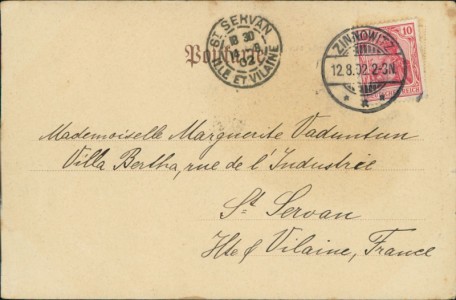 St SERVAN
18 30
14 - 8
02
ILLE ET VILAINE
Postkarte
10
ZINNOWITZ
12.8.02.2-3N.
* * *
REICH
Mademoiselle Marguerite Vaduntun
Villa Bertha, rue de l'Industrie
St Servan
Ille & Vilaine, France